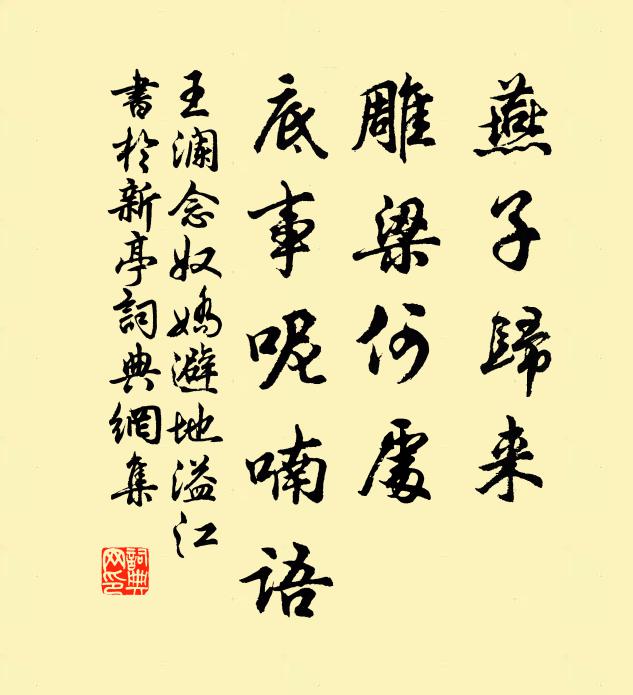 燕子歸来
雕梁何處
底事呢喃語
王瀾念奴嬌避地溢江
書於新亭詞典網集
詞典网印